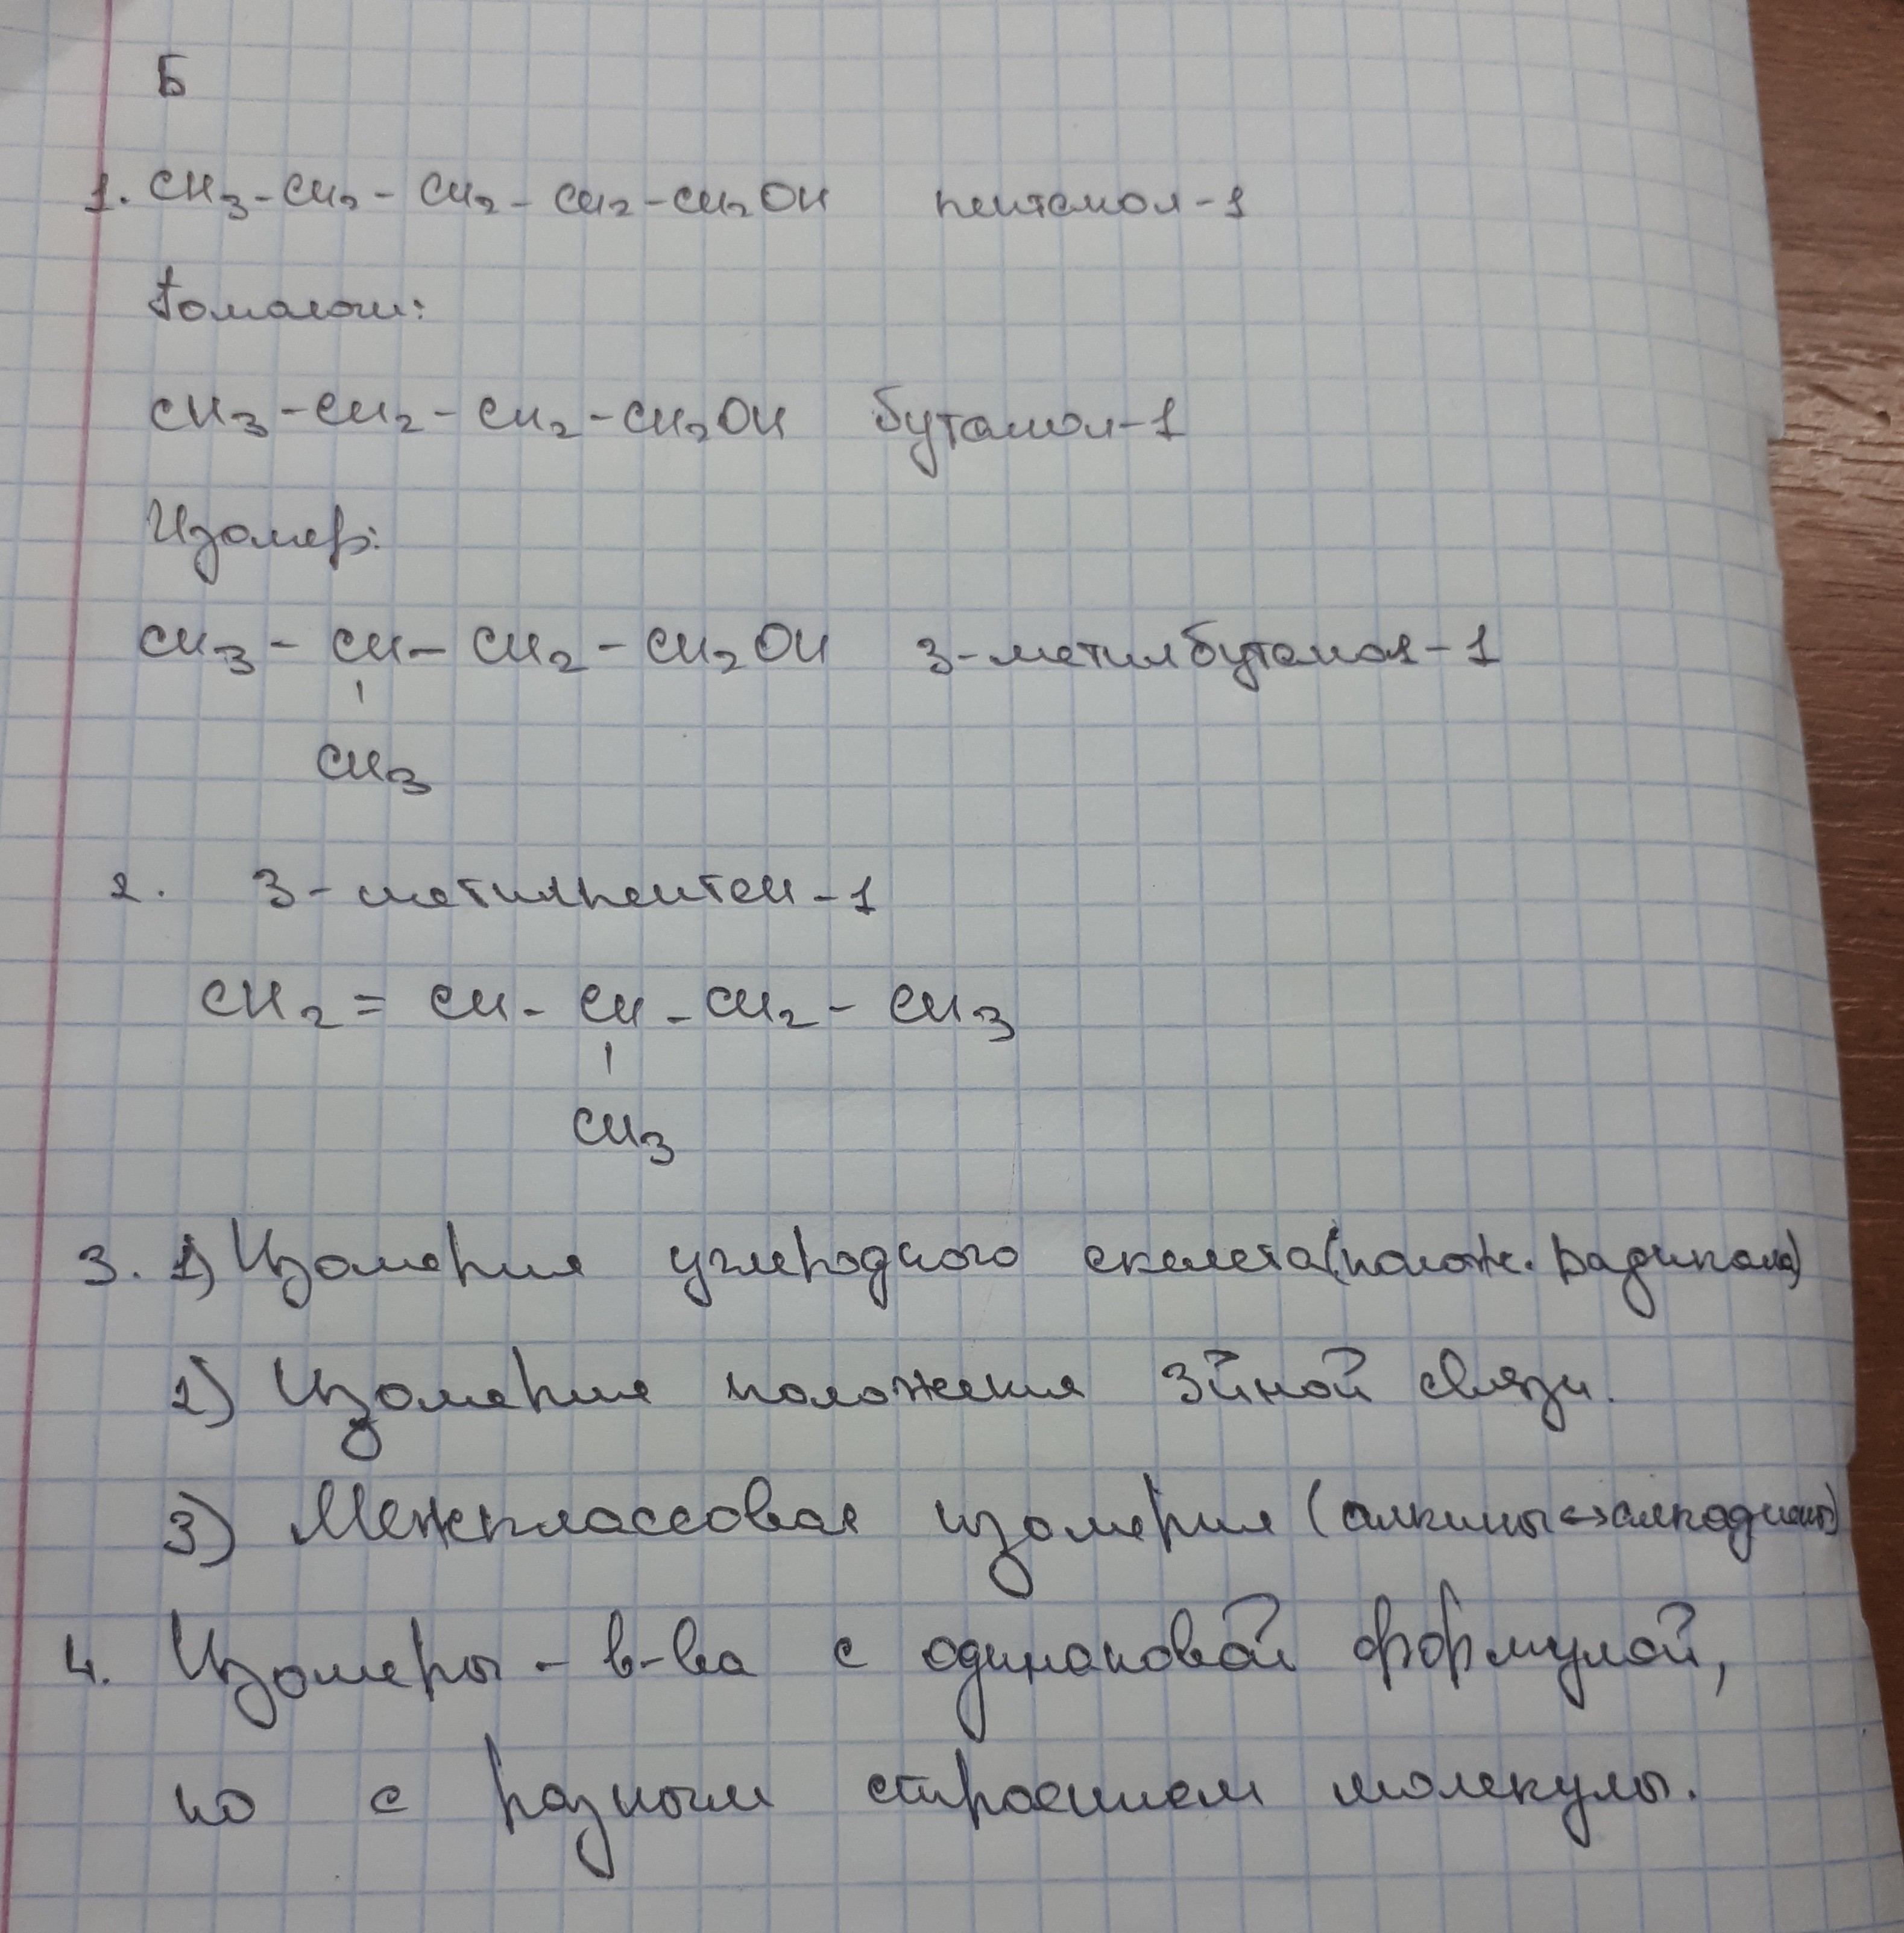 Б
1. CH3-CH2-CH2-CH2-CH2OH пентанол-1
Гомологи:
CH3-CH2-CH2-CH2OH бутанол-1
Изомер:
CH3-CH-CH2-CH2OH 3-метилбутанол-1
CH3
2. 3-метилпентен-1
CH2=CH-CH-CH2-CH3
CH3
3. 1) Изомерия углеродного скелета (полож. радикала)
2) Изомерия положения 3йной связи.
3) Межклассовая изомерия (алкины↔алкадиены)
4. Изомеры - в-ва с одинаковой формулой,
но с разным строением молекулы.